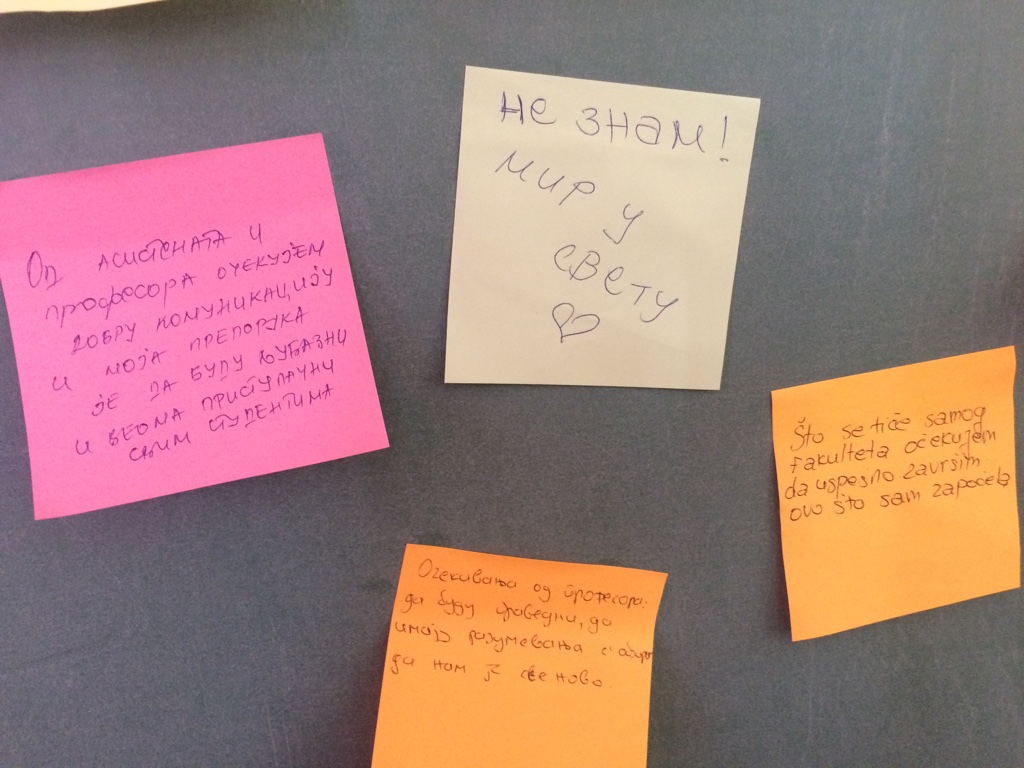 Од асистената и
професора очекујем
добру комуникацију
и моја препорука
је да буду љубазни
и веома приступачни
свим студентима
НЕ ЗНАМ!
МИР
У
СВЕТУ
♡
Što se tiče samog
fakulteta očekujem
da uspešno završim
ovo što sam započela
Очекивања од професора:
да буду праведни, да
имају разумевања с обзиром
да нам је све ново.